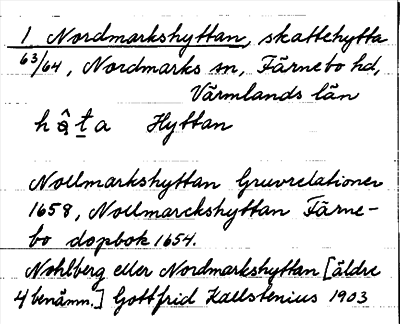 1 Nordmarkshyttan, skattehytta
63/64, Nordmarks sn, Färnebo hd,
Värmlands län
hâta Hyttan
Nollmarkshyttan Gruvrelationer
1658, Nollmarckshyttan Färne-
bo dopbok 1654.
Nohlberg eller Nordmarkshyttan [äldre
benämn.] Gottfrid Kallstenius 1903